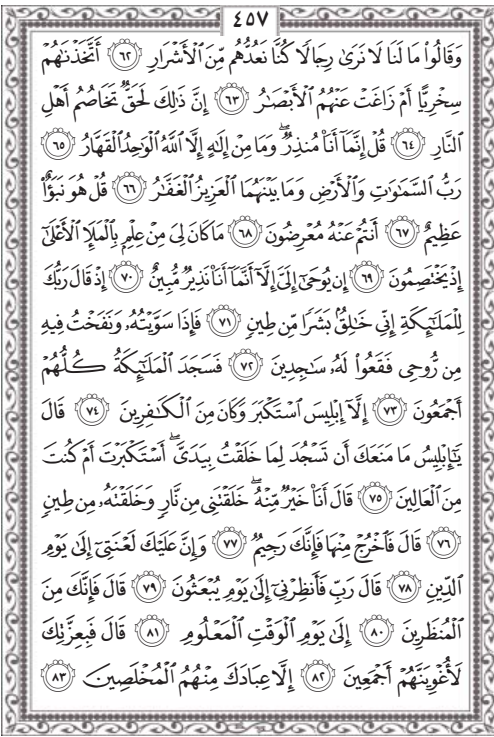 ٤٥٧
وَقَالُوا۟ مَا لَنَا لَا نَرَىٰ رِجَالًا كُنَّا نَعُدُّهُم مِّنَ ٱلْأَشْرَارِ ٦٢ أَتَّخَذْنَـٰهُمْ
سِخْرِيًّا أَمْ زَاغَتْ عَنْهُمُ ٱلْأَبْصَـٰرُ ٦٣ إِنَّ ذَٰلِكَ لَحَقٌّ تَخَاصُمُ أَهْلِ
ٱلنَّارِ ٦٤ قُلْ إِنَّمَآ أَنَا۠ مُنذِرٌ ۖ وَمَا مِنْ إِلَـٰهٍ إِلَّا ٱللَّهُ ٱلْوَٰحِدُ ٱلْقَهَّارُ ٦٥
رَبُّ ٱلسَّمَـٰوَٰتِ وَٱلْأَرْضِ وَمَا بَيْنَهُمَا ٱلْعَزِيزُ ٱلْغَفَّـٰرُ ٦٦ قُلْ هُوَ نَبَؤٌا۟
عَظِيمٌ ٦٧ أَنتُمْ عَنْهُ مُعْرِضُونَ ٦٨ مَا كَانَ لِىَ مِنْ عِلْمٍۭ بِٱلْمَلَإِ ٱلْأَعْلَىٰٓ
إِذْ يَخْتَصِمُونَ ٦٩ إِن يُوحَىٰٓ إِلَىَّ إِلَّآ أَنَّمَآ أَنَا۠ نَذِيرٌ مُّبِينٌ ٧٠ إِذْ قَالَ رَبُّكَ
لِلْمَلَـٰٓئِكَةِ إِنِّى خَـٰلِقٌۢ بَشَرًا مِّن طِينٍ ٧١ فَإِذَا سَوَّيْتُهُۥ وَنَفَخْتُ فِيهِ
مِن رُّوحِى فَقَعُوا۟ لَهُۥ سَـٰجِدِينَ ٧٢ فَسَجَدَ ٱلْمَلَـٰٓئِكَةُ كُلُّهُمْ
أَجْمَعُونَ ٧٣ إِلَّآ إِبْلِيسَ ٱسْتَكْبَرَ وَكَانَ مِنَ ٱلْكَـٰفِرِينَ ٧٤ قَالَ
يَـٰٓإِبْلِيسُ مَا مَنَعَكَ أَن تَسْجُدَ لِمَا خَلَقْتُ بِيَدَىَّ ۖ أَسْتَكْبَرْتَ أَمْ كُنتَ
مِنَ ٱلْعَالِينَ ٧٥ قَالَ أَنَا۠ خَيْرٌ مِّنْهُ ۖ خَلَقْتَنِى مِن نَّارٍ وَخَلَقْتَهُۥ مِن طِينٍ
٧٦ قَالَ فَٱخْرُجْ مِنْهَا فَإِنَّكَ رَجِيمٌ ٧٧ وَإِنَّ عَلَيْكَ لَعْنَتِىٓ إِلَىٰ يَوْمِ
ٱلدِّينِ ٧٨ قَالَ رَبِّ فَأَنظِرْنِىٓ إِلَىٰ يَوْمِ يُبْعَثُونَ ٧٩ قَالَ فَإِنَّكَ مِنَ
ٱلْمُنظَرِينَ ٨٠ إِلَىٰ يَوْمِ ٱلْوَقْتِ ٱلْمَعْلُومِ ٨١ قَالَ فَبِعِزَّتِكَ
لَأُغْوِيَنَّهُمْ أَجْمَعِينَ ٨٢ إِلَّا عِبَادَكَ مِنْهُمُ ٱلْمُخْلَصِينَ ٨٣